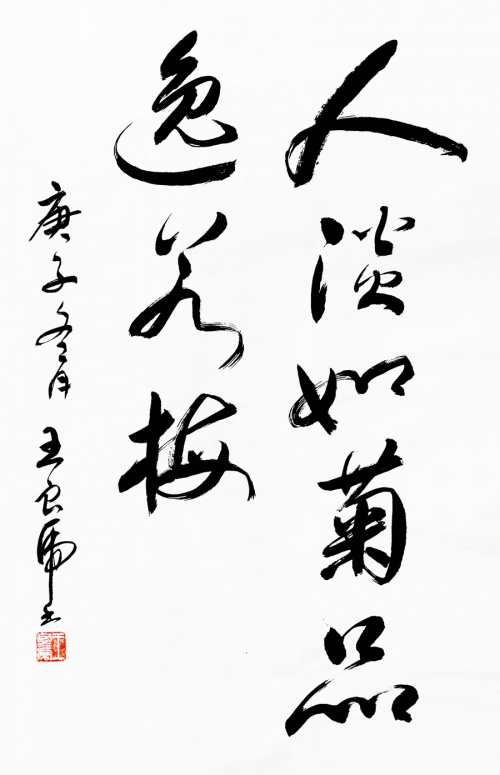 人淡如菊品
逸若梅
庚子冬月 王良虎书